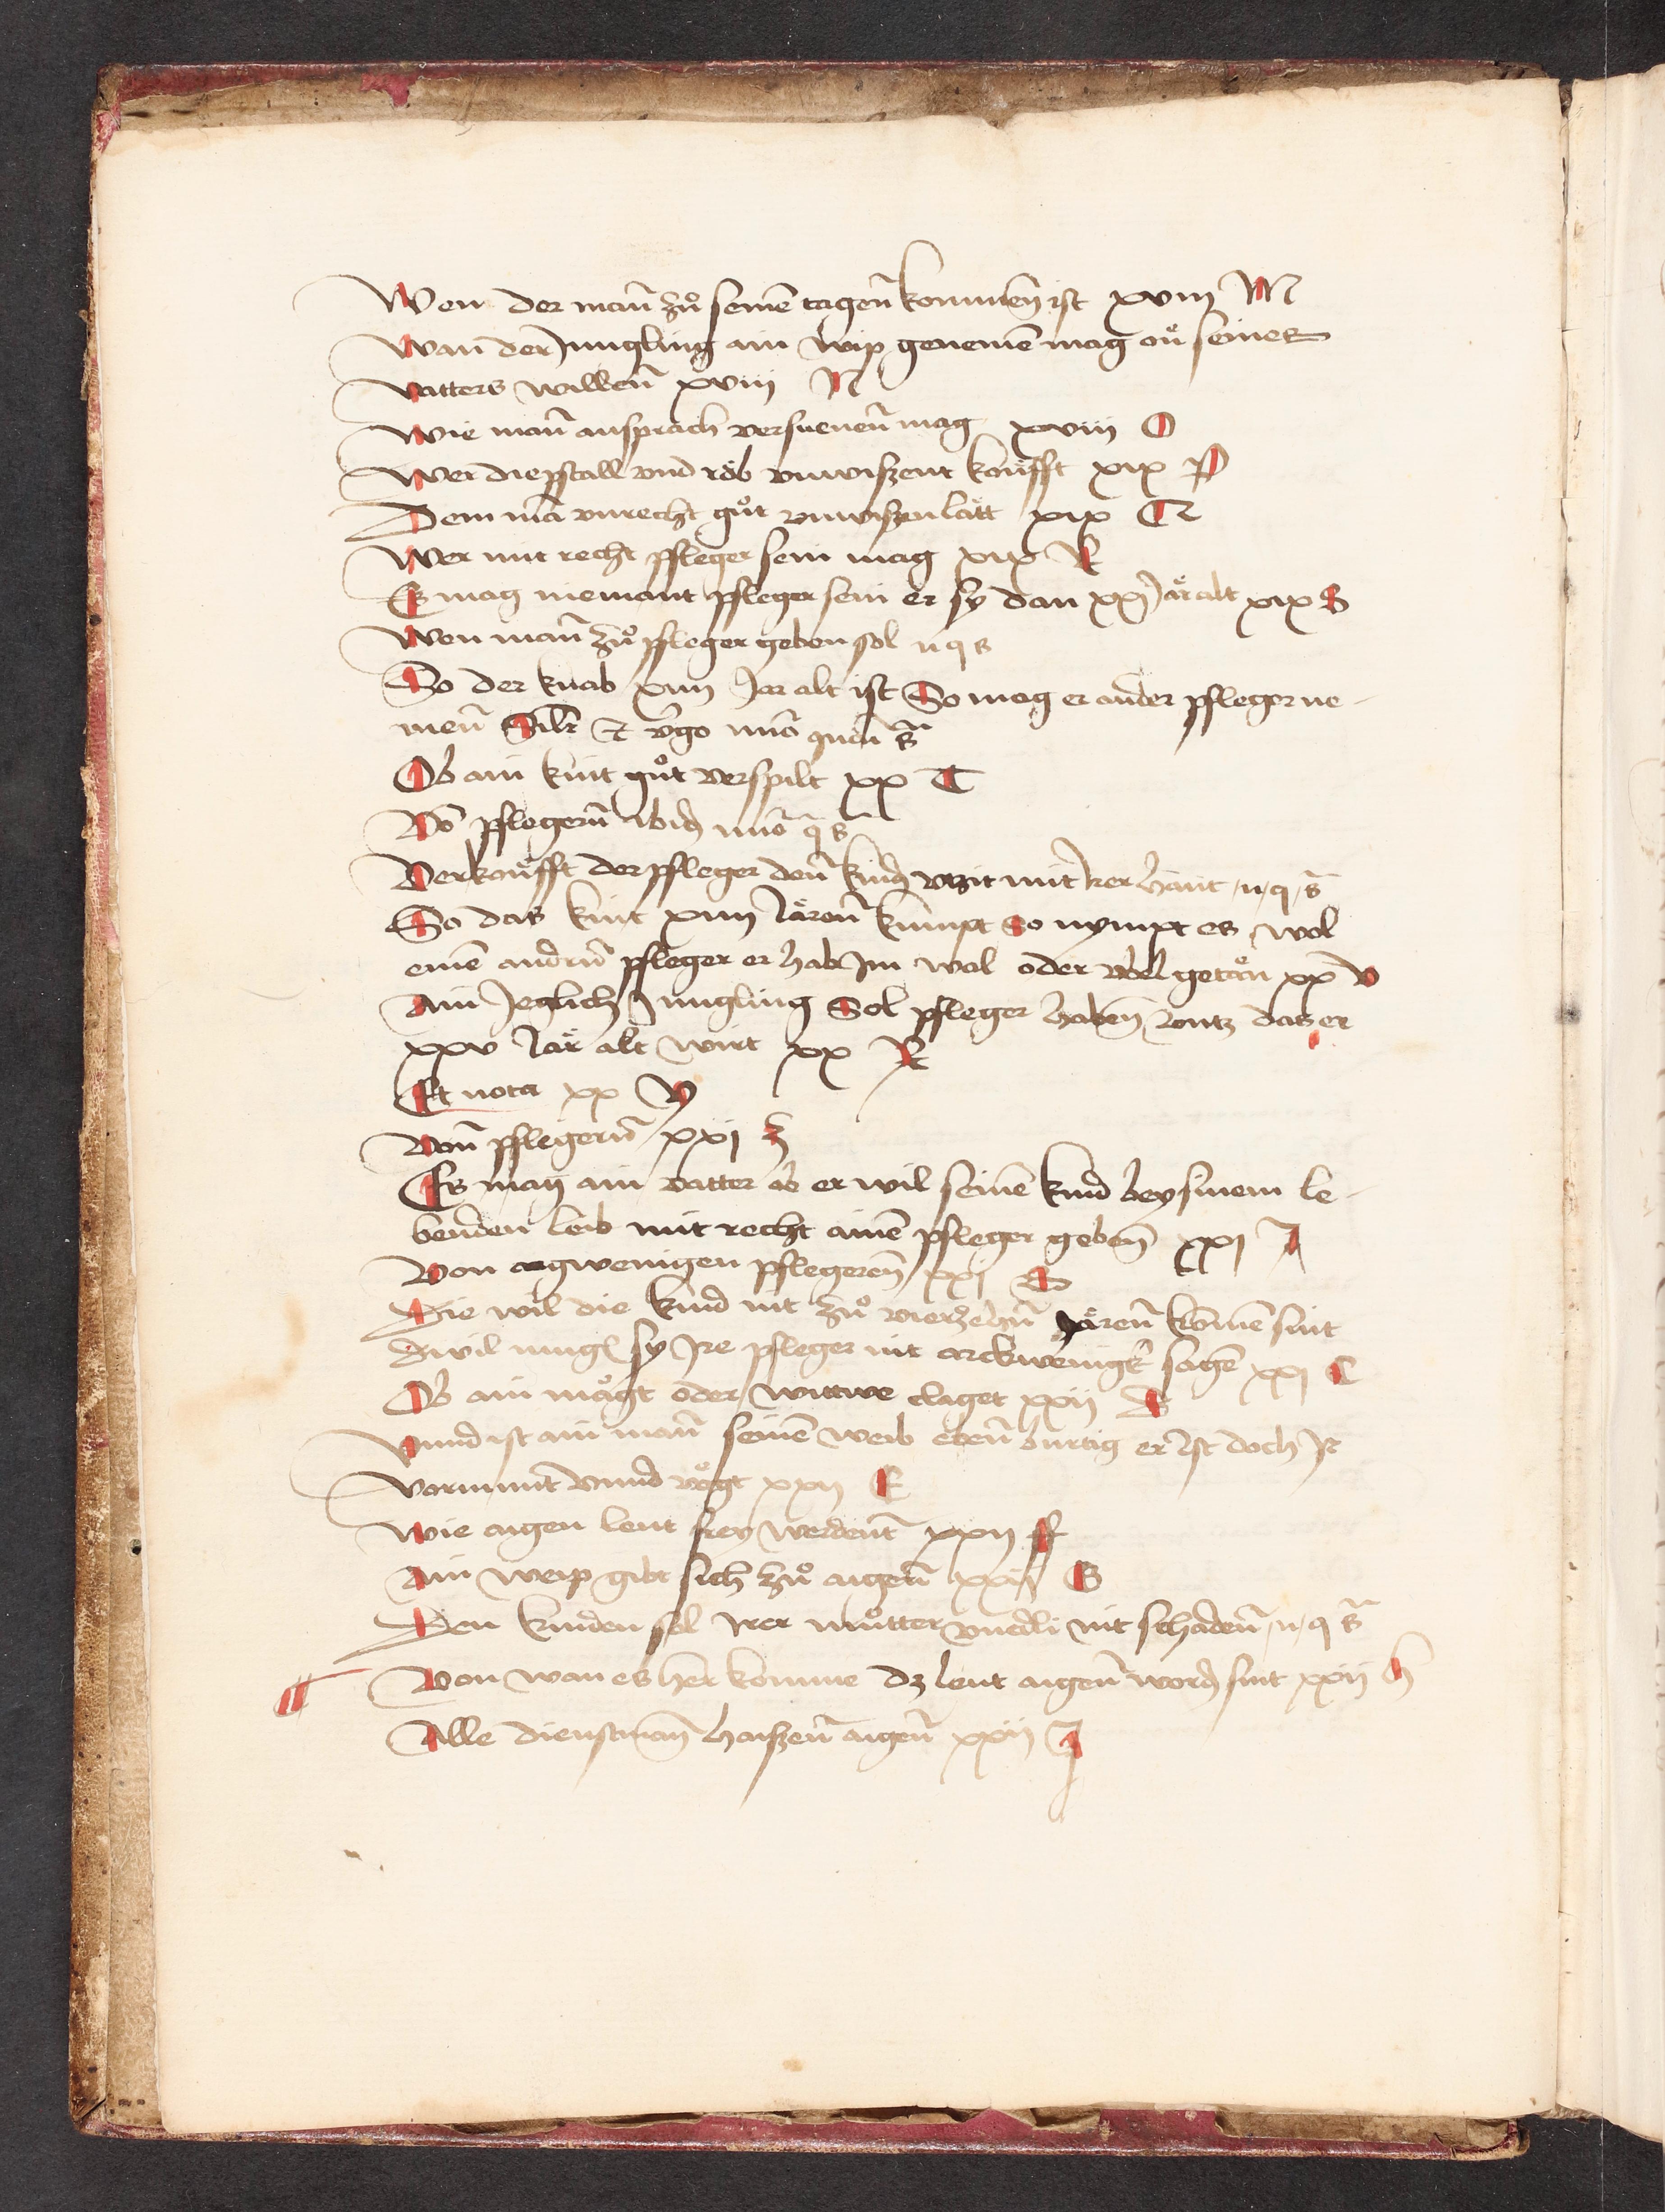 Wen der man̄ zuͦ seinē tagen̄ kommen̄ ist xviii M
Wan̄ der Jungling ain wip genemē mag on̄ seines
vatters willen̄ xviii N
Wie man̄ ansprach versuenen̄ mag xviii O
Wer diepstall vnd röb vnwiszent koͧfft xix P
Dem mā vnrecht guͦt vnwiszen latt xix Q
Wer mit recht pfleger sein mag xix R
Es mag niemant pfleger sein er sy dan xxj Jar alt xix S
Wen man̄ zuͦ pfleger geben sol n q s
So der knab xiiii Jar alt ist So mag er ander pfleger ne-
men̄ Silr̄ & v̄go nūo quō s̄
Ob ain kint guͦt verspilt xx T
Vō pflegern̄ ibid nūo q s
Verkoͧfft der pfleger den̄ kind vtzit mit ker hant n q s̄
So das kint xiiii Jaren̄ kumpt so nympt es wol
einē andrn̄ pfleger er hab Im wol oder vbel getan xx V
Ain Jeglich Jungling Sol pfleger haben̄ vntz das er
xxv Jar alt wirt xx X
Et nota xx Y
Von̄ pflegern̄ xxj Z
Es mag ain vatter ob er wil seinē kind bey sinem le-
benden leib mit recht ainē pfleger geben̄ xxj A
Von argwenigen pflegeren̄ xxj B
Die wil die kind nit zuͦ vierzehen̄ Jaren̄ komē sint
Diwil mugē sy Ire pfleger nit arckwenigk̄ sagē xxj C
Ob ain magt oder wittwe claget xxij D
Vnnd ist ain man̄ seinē weib eben̄ burtig er ist doch Ir
vormunt vnnd vögt xxij E
Wie aigen leut frey werdent̄ xxij F
Ain weip gibt sich zuͦ aigen̄ xxij G
Den kinden sol Irer muͦtter vnedli nit schaden̄ n q s̄
Von wan es her komme dz leut aigen̄ word sint xxij H
Alle dienstman̄ haiszen̄ aigen̄ xxij J